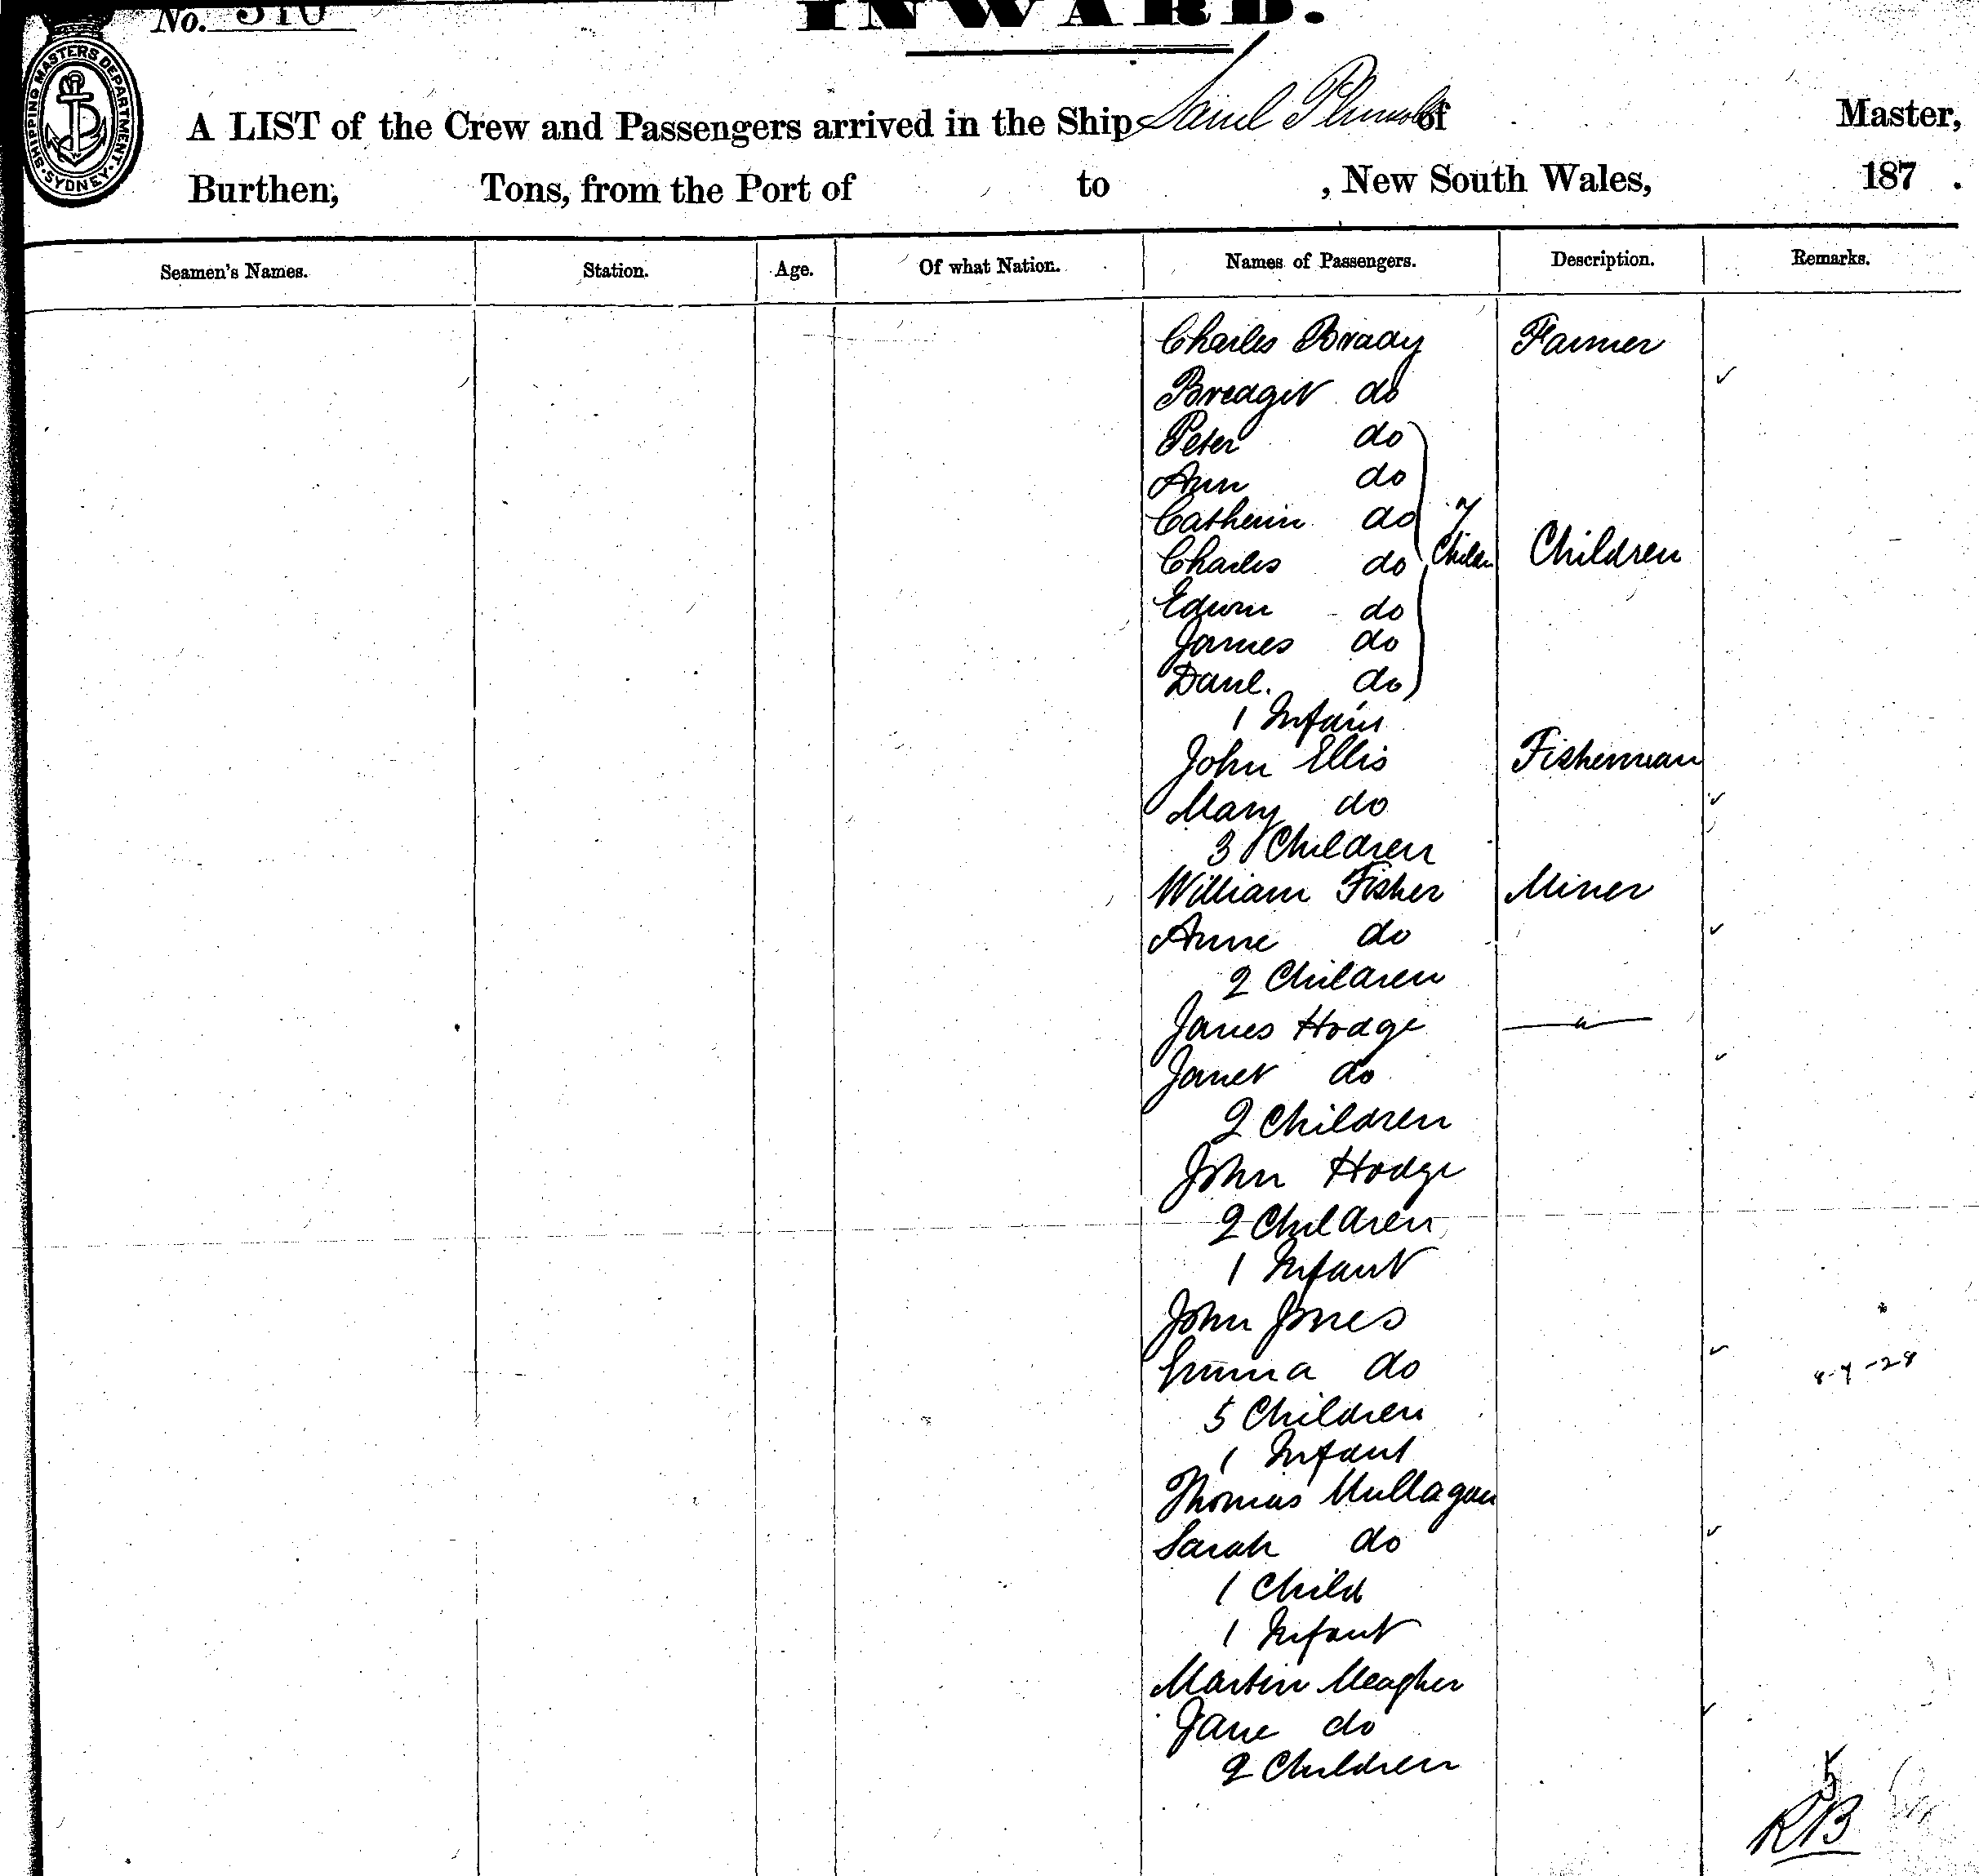 No. 310
INWARD.
SHIPPING MASTERS DEPARTMENT · SYDNEY ·
A LIST of the Crew and Passengers arrived in the Ship Saml Plimsoll of Master,
Burthen, Tons, from the Port of to , New South Wales, 187 .
Seamen's Names. Station. Age. Of what Nation. Names of Passengers. Description. Remarks.
Charles Brady Farmer
Bredgit do
Peter do
Ann do
Catherin do 7
Charles do Childn Children
Edwin do
James do
Danl. do
1 Infant
John Ellis Fisherman
Mary do
3 Children
William Fisher Miner
Anne do
2 Children
James Hodge — " —
Janet do
2 Children
John Hodge
2 Children
1 Infant
John Jones
Emma do 8-7-28
5 Children
1 Infant
Thomas Mullagan
Sarah do
1 Child
1 Infant
Martin Meagher
Jane do
2 Children
5
RB